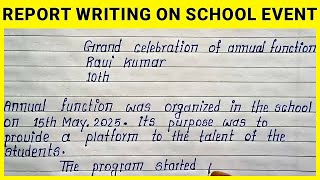 REPORT WRITING ON SCHOOL EVENT
Grand celebration of annual function
Ravi Kumar
10th
Annual function was organized in the school
on 15th May, 2025. Its purpose was to
provide a platform to the talent of the
students.
The program started